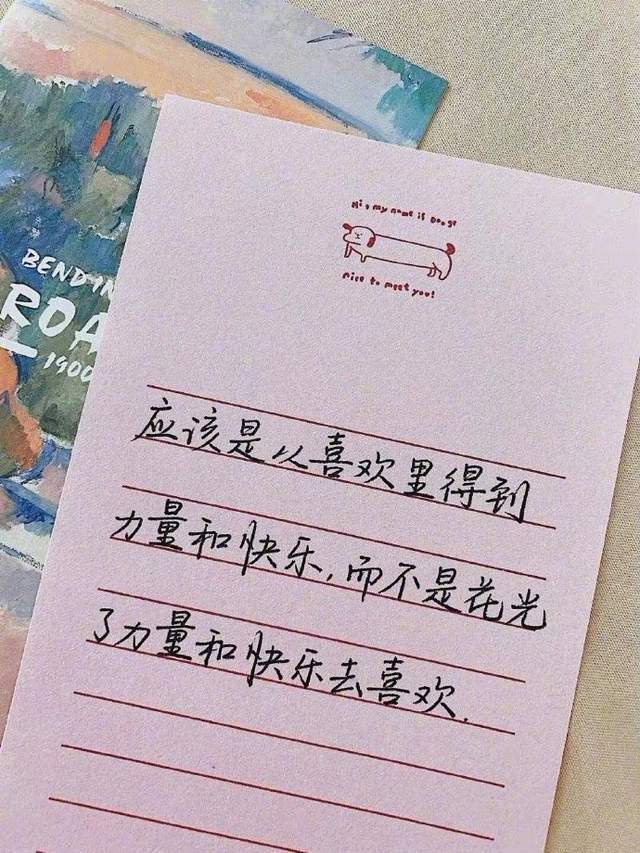 BENDIN
ROA
1900
Hi, my name is Dooge
Nice to meet you!
应该是从喜欢里得到
力量和快乐,而不是花光
了力量和快乐去喜欢.